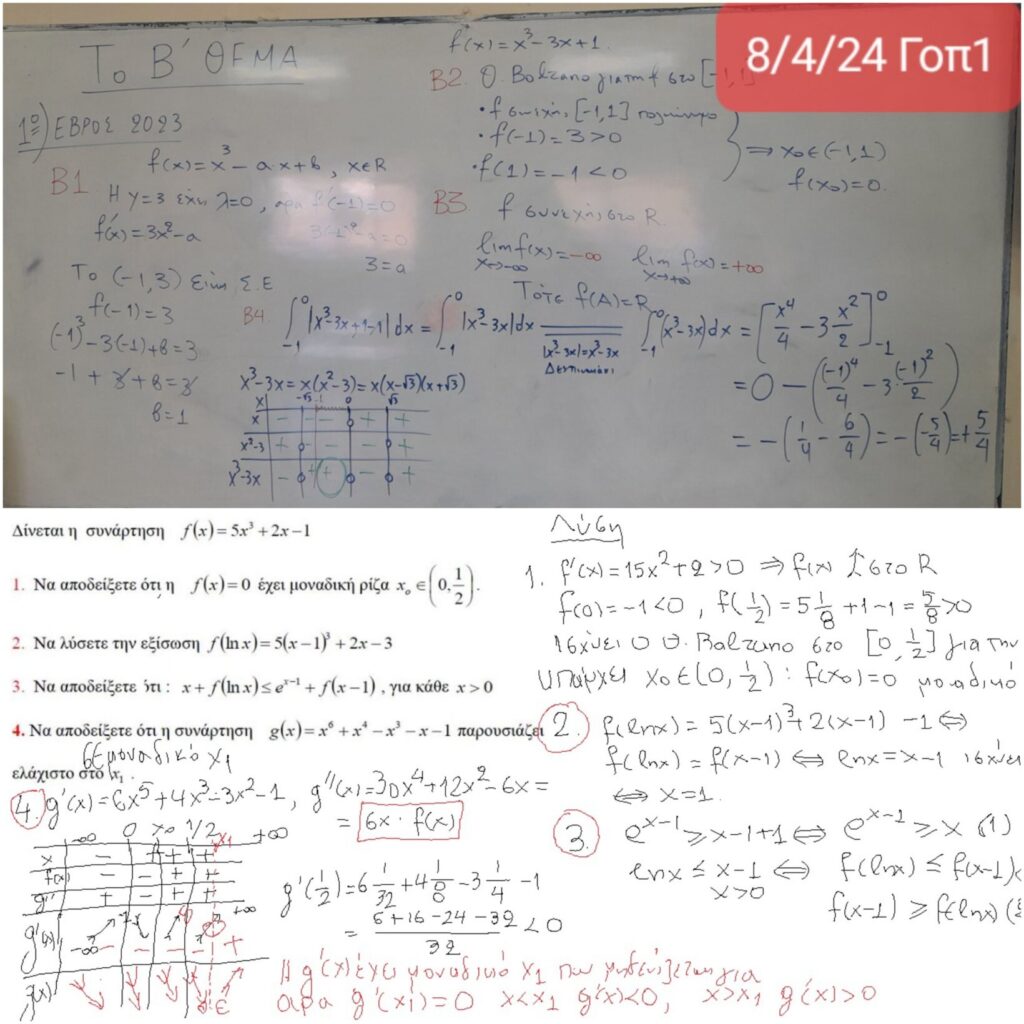 8/4/24 Γοπ1
Το Β' ΘΕΜΑ
1ο) ΕΒΡΟΣ 2023
f(x)=x³-αx+β, x∈R
Β1
Η y=3 έχει λ=0, άρα f'(-1)=0
f'(x)=3x²-α
3=α
Το (-1,3) είναι Σ.Ε
f(-1)=3
(-1)³-3(-1)+β=3
-1+3+β=3
β=1
f(x)=x³-3x+1
Β2. Θ. Bolzano για τη f στο [-1,1]
• f συνεχής [-1,1] πολυώνυμο
• f(-1)=3>0
• f(1)=-1<0
⇒ x₀∈(-1,1)
f(x₀)=0.
Β3 f συνεχής στο R.
lim f(x)=-∞ lim f(x)=+∞
x→-∞ x→+∞
Τότε f(A)=R
Β4 ∫₋₁⁰ |x³-3x+1-1| dx = ∫₋₁⁰ |x³-3x| dx = ∫₋₁⁰ (x³-3x) dx = [x⁴/4 - 3 x²/2]₋₁⁰
|x³-3x|=x³-3x
= 0 - ((-1)⁴/4 - 3·(-1)²/2)
= -(1/4 - 6/4) = -(-5/4) = +5/4
x³-3x=x(x²-3)=x(x-√3)(x+√3)
x -√3 -1 0 √3
x - - - + +
x²-3 + - - - +
x³-3x - + + - +
Δίνεται η συνάρτηση f(x)=5x³+2x-1
1. Να αποδείξετε ότι η f(x)=0 έχει μοναδική ρίζα xₒ∈(0,1/2).
2. Να λύσετε την εξίσωση f(ln x)=5(x-1)³+2x-3
3. Να αποδείξετε ότι : x+f(ln x)≤eˣ⁻¹+f(x-1), για κάθε x>0
4. Να αποδείξετε ότι η συνάρτηση g(x)=x⁶+x⁴-x³-x-1 παρουσιάζει
σε μοναδικό x₁
ελάχιστο στο x₁.
Λύση
1. f'(x)=15x²+2>0 ⇒ f(x) ↑ στο R
f(0)=-1<0, f(1/2)=5 1/8+1-1=5/8>0
Ισχύει ο Θ. Bolzano στο [0,1/2] για την
υπάρχει x₀∈(0,1/2): f(x₀)=0 μοναδικό
2. f(lnx)=5(x-1)³+2(x-1)-1 ⇔
f(lnx)=f(x-1) ⇔ lnx=x-1 ισχύει
⇔ x=1.
3. eˣ⁻¹≥x-1+1 ⇔ eˣ⁻¹≥x (1)
lnx≤x-1 ⇔ f(lnx)≤f(x-1)
x>0
f(x-1)≥f(lnx)
4. g'(x)=6x⁵+4x³-3x²-1, g''(x)=30x⁴+12x²-6x=
= 6x·f(x)
-∞ 0 x₀ 1/2 x₁ +∞
x - + + +
f(x) - - + +
g'' + - + +
g'(x) -∞ - - - + +∞
g(x) ε
g'(1/2)=6 1/32+4 1/8-3 1/4-1
= (6+16-24-32)/32 <0
Η g'(x) έχει μοναδικό x₁ που μηδενίζεται για
άρα g'(x₁)=0 x<x₁ g'(x)<0, x>x₁ g'(x)>0